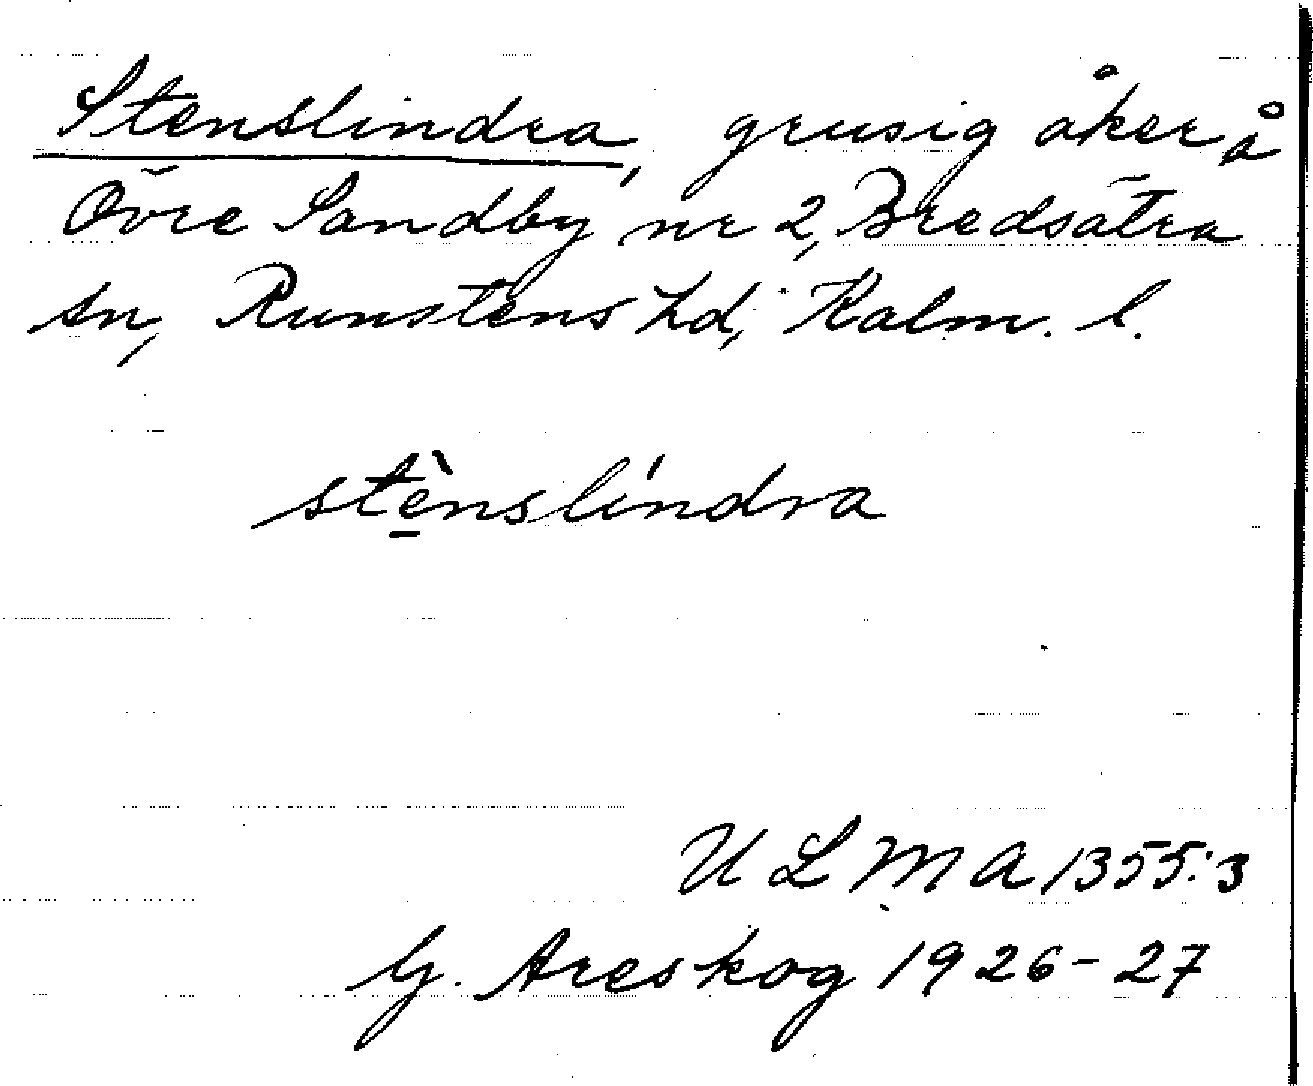 Stenslindra, grusig åker å
Övre Sandby nr 2, Bredsätra
sn, Runstens hd, Kalm. l.
stè̱nslíndra
ULMA 1355:3
G. Areskog 1926-27